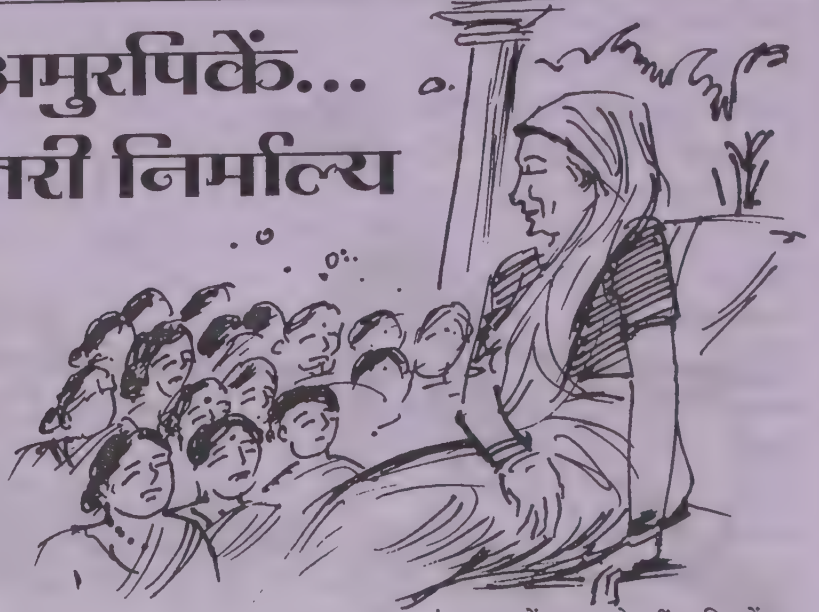 अमुरपिकें...
तरी निर्माल्य